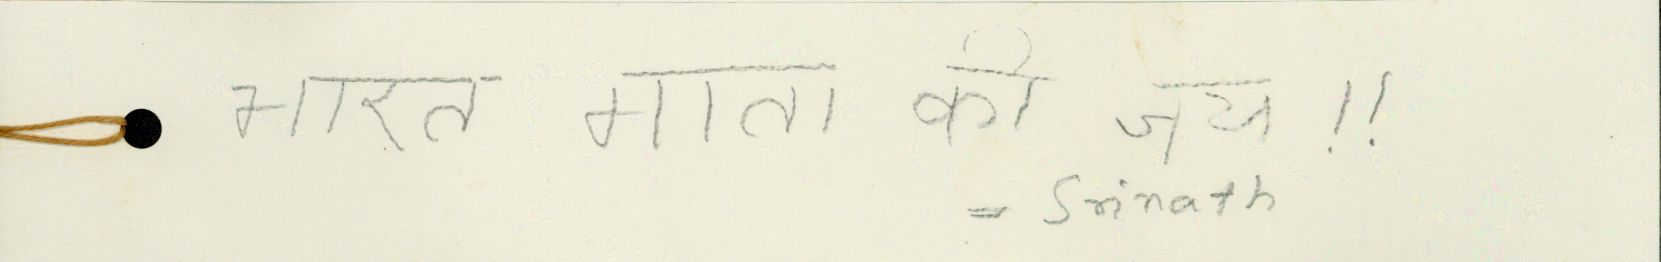 भारत माता की जय !!
= Srinath